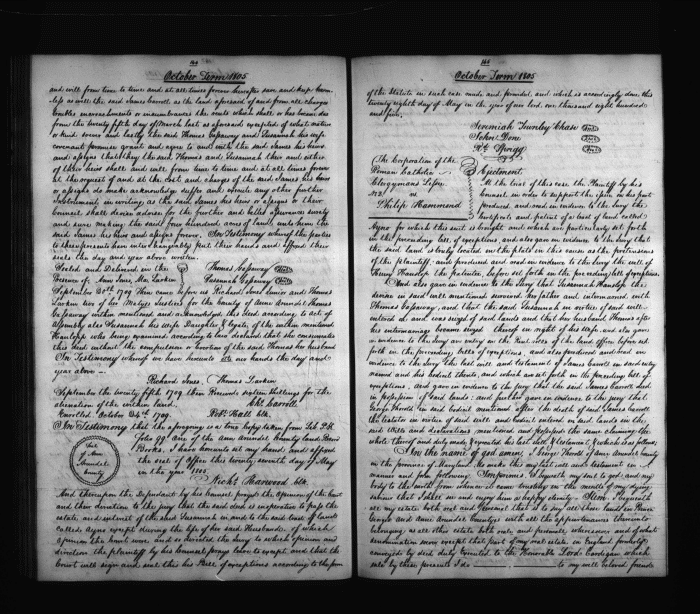 October Term 1805
and will from time to time and at all times forever hereafter save and keep harm
less as well the said James Carroll as the land aforesaid of and from all charges
troubles incumbrances the rents which shall or has become due
from the twenty fifth day of March last as aforesaid excepted of what nature
or kind soever and lastly the said Thomas Gassaway and Susannah his wife
covenant promise grant and agree to and with the said James his heirs
and assigns that they the said Thomas and Susannah their and either
of their heirs shall and will from time to time and at all times forever
at the request and at the cost and charges of the said James his heirs
or assigns do make acknowledge suffer and execute any other further
Instrument in writing as the said James his heirs or assigns or their
Council shall devise advise for the further and better assurance surety
and sure making the said four hundred acres of land unto him the
said James his heirs and assigns forever. In Testimony whereof the parties
to these presents have interchangeably put their hands and affixed their
seals the day and year above written
Sealed and Delivered in the Thomas Gassaway
Presence of Susannah Gassaway
September 1709 then came before us Richard Jones Junior and Thomas
Larkin two of her Majtys Justices for the County of Anne Arundel Thomas
Gassaway within mentioned and acknowledged this deed according to act of
Assembly also Susannah his wife Daughter & legate of the within mentioned
who being examined according to law declared that she consummates
this deed without the compulsion or coertion of the said Thomas her husband
In Testimony whereof we have hereunto set our hands the day and
year above
Richard Jones Thomas Larkin
September the twenty fifth 1709 then Received sixteen shillings for the
alienation of the within land. Chs Carroll
Enrolled October 24th 1709. Hall Clk.
In Testimony that the aforegoing is a true copy taken from Lib
folio 99 One of the Ann Arundel County land Record
Books, I have hereunto set my hand and affixed
the seal of office this twenty seventh day of May
in the year 1805
Nichs Harwood Clk
Seal
of Ann
Arundel
County
And thereupon the Defendant by his Counsel prayed the Opinion of the Court
and their direction to the Jury that the said deed is inoperative to pass the
estate and interest of the said Susannah in and to the said tract of land
Called Ayno except during the life of her said Husband, of which
Opinion the Court were and so directed the Jury to which opinion and
direction the plaintiff by his Counsel prays leave to except and that the
Court will sign and seal this his Bill of exceptions according to the form
October Term 1805
of the Statute in such case made and provided and which is accordingly done this
twenty eighth day of May in the year of our lord one thousand eight hundred
and five.
Jeremiah Townley Chase
John Done
Rd Sprigg
The Corporation of the
Roman Catholic
Clergymans Lessee
vs
Philip Hammond
Ejectment
At the trial of this case the Plaintiff by his
Counsel in order to support the issue on his part
produced and read in evidence to the Jury the
certificate and patent of a tract of land called
Ayno for which this suit is brought and which are particularly set forth
in the preceeding bill of exceptions and also gave in evidence to the Jury that
the said land is truely located on the plots in this cause as the pretensions
of the plaintiff, and produced and read in evidence to the Jury the will of
Henry the patentee before set forth in the preceeding bill of exceptions
And also gave in evidence to the Jury that Susannah the
devisee in said will mentioned survived her father and intermarried with
Thomas Gassaway, and that the said Susannah in virtue of said will
entered and was seized of said lands and that her husband Thomas after
his intermarriage became seized thereof in right of his wife, and also gave
in evidence to the Jury an entry on the Rent Rolls of the land Office before set
forth in the preceeding bills of exceptions, and also produced and read in
evidence to the Jury the last will and testament of James Carroll in said entry
named and his bodies thereto, and which are set forth in the preceeding bills of
exceptions, and gave in evidence to the Jury that the said James Carroll died
in possession of said lands: and further gave in evidence to the Jury that
George Thorold in said bodies mentioned after the death of said James Carroll
the testator in virtue of said will and bodies entered on said lands in the
said Plots and declarations mentioned and possessed the same claiming the
whole thereof and duly made & executed his last will & testament & which is as follows,
In the name of god amen I George Thorold of Ann Arundel County
in the Province of Maryland do make this my last will and testament in
manner and form following Imprimis I bequeath my soul to god and my
body to the earth from whence it came trusting in the merits of my dying
saviour that I shall in and enjoy him a happy eternity. Item I bequeath
all my estate both real and personal that is to say all those lands in Prince
Georges and Anne Arundel Countys with all the appurtenances thereunto
belonging as all other estate both real and personal wheresoever and of what
denomination soever except that part of my real estate in England formerly
conveyed by deed duly executed to the Honorable Lord Cardigan which
said by these presents I do to my well beloved friends